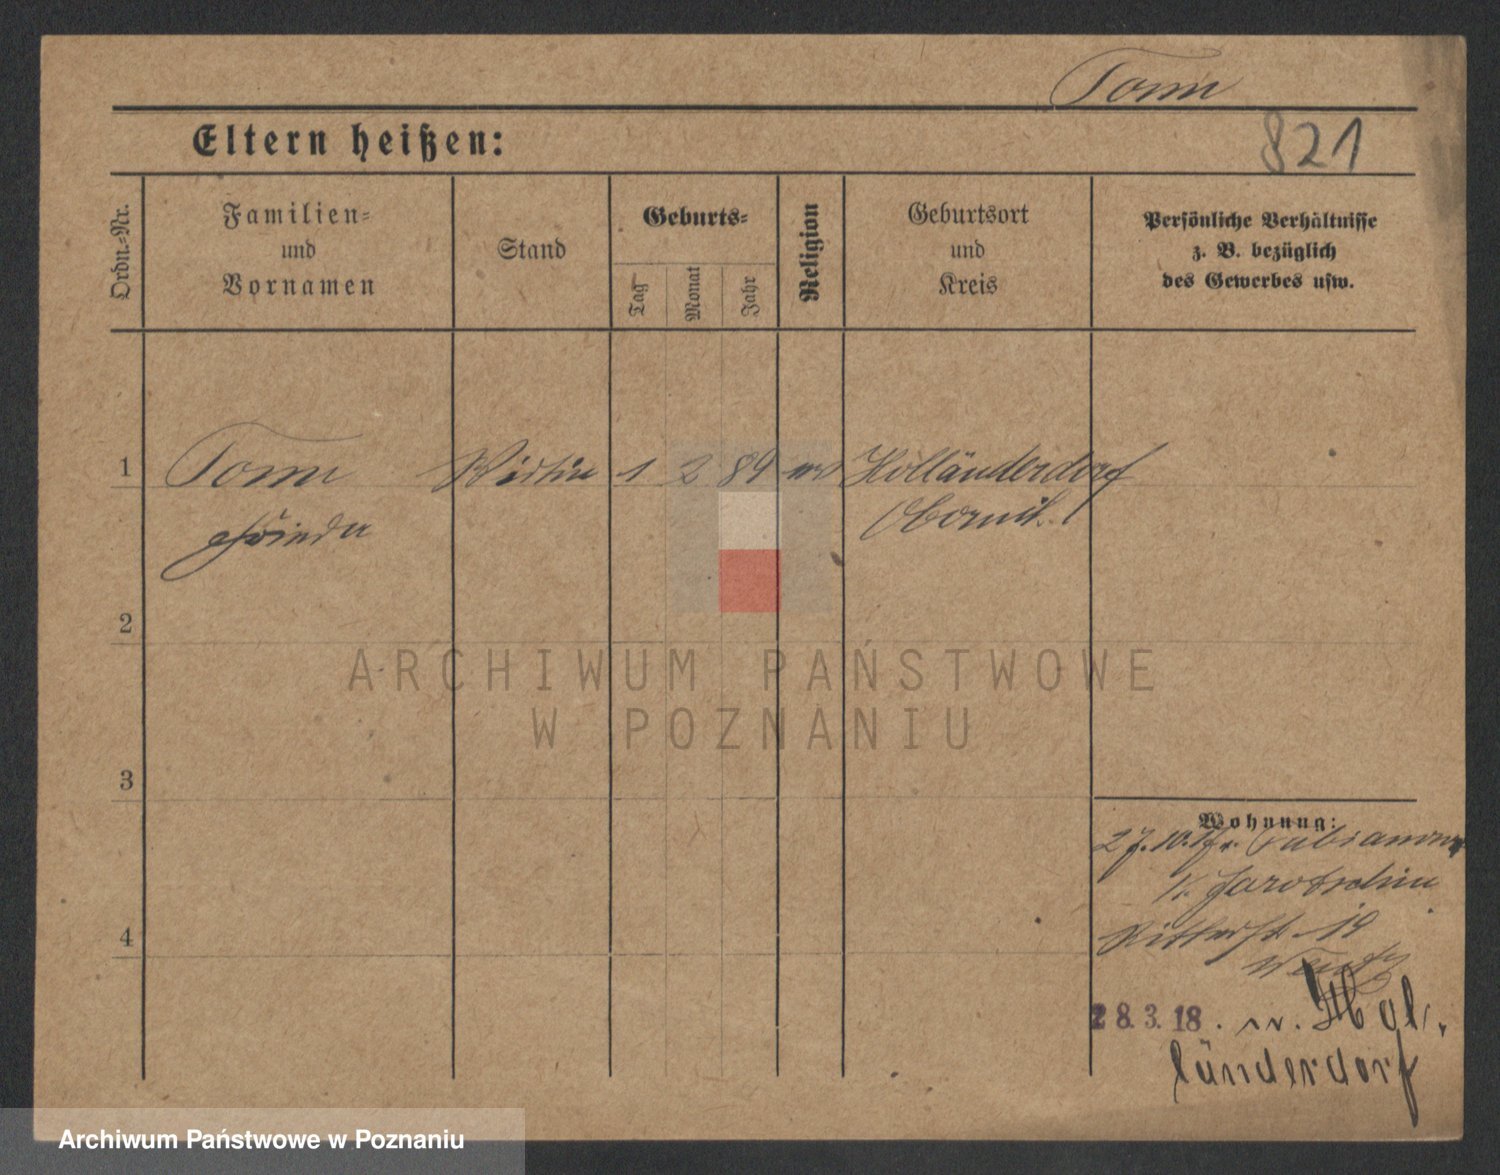 Tonn
Eltern heißen:
821
Ordn.-Nr.
Familien-
und
Vornamen
Stand
Geburts-
Tag
Monat
Jahr
Religion
Geburtsort
und
Kreis
Persönliche Verhältnisse
z. B. bezüglich
des Gewerbes usw.
1 Tonn Wirtin 1 2 84 Holländerdorf
Obornik
2
3
4
ARCHIWUM PAŃSTWOWE
W POZNANIU
Wohnung:
27.10.17. v.
K. Jarotschin
Ritterstr. 19
28.3.18. n. Hol-
länderdorf
Archiwum Państwowe w Poznaniu